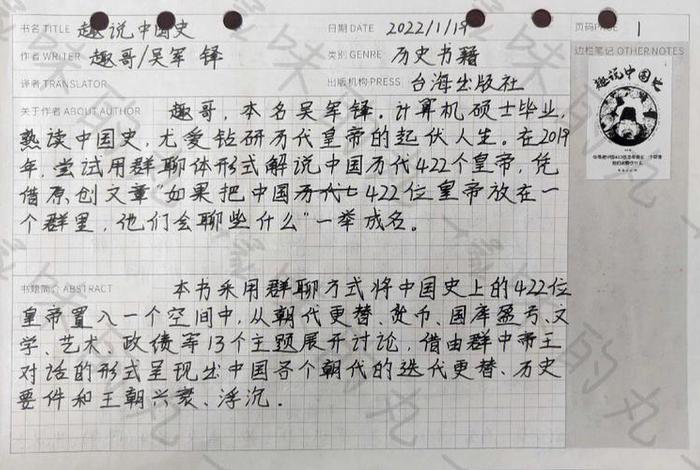 书名 TITLE 趣说中国史 日期 DATE 2022/1/19 页码 PAGE 1
作者 WRITER 趣哥/吴军 铎 类别 GENRE 历史书籍 边栏笔记 OTHER NOTES
译者 TRANSLATOR 出版机构 PRESS 台海出版社
趣说中国史
关于作者 ABOUT AUTHOR 趣哥,本名吴军铎。计算机硕士毕业,
熟读中国史,尤爱钻研历代皇帝的起伏人生。在2019
年,尝试用群聊体形式解说中国历代422个皇帝,凭
借原创文章“如果把中国历代七422位皇帝放在一
个群里,他们会聊些什么”一举成名。
书籍简介 ABSTRACT 本书采用群聊方式将中国史上的422位
皇帝置入一个空间中,从朝代更替、货币、国库盈亏、文
学、艺术、政绩等13个主题展开讨论,借由群中帝王
对话的形式呈现出中国各个朝代的迭代更替、历史
要件和王朝兴衰、浮沉.